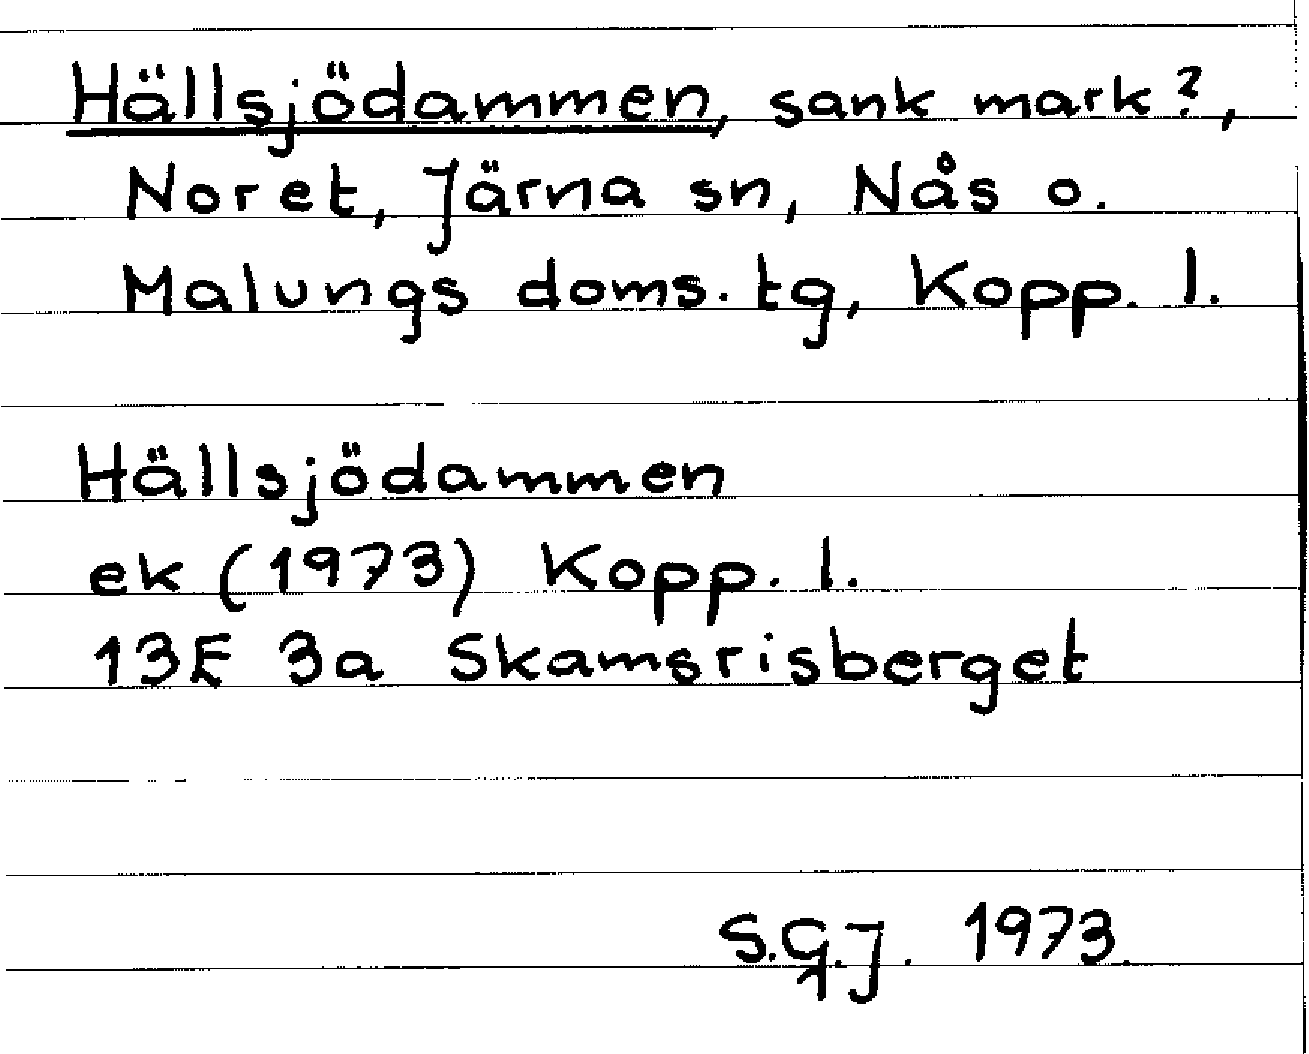 Hällsjödammen, sank mark?,
Noret, Järna sn, Nås o.
Malungs doms. tg, Kopp. l.
Hällsjödammen
ek (1973) Kopp. l.
13E 3a Skamsrisberget
S.G.J. 1973.